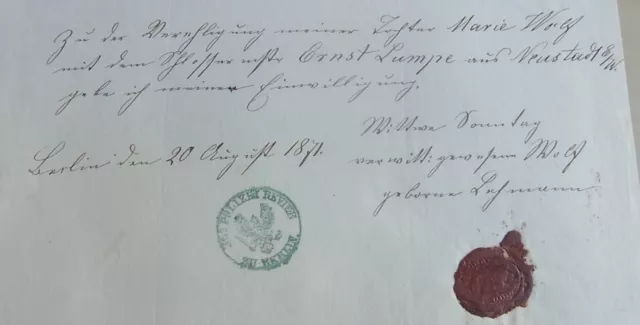 Zu der Verehligung meiner Tochter Marie Wolf
mit dem Schlossermstr Ernst Lumpe aus Neustadt
gebe ich meine Einwilligung.
Wittwe Sonntag
Berlin den 20 August 1871.
verwitt: gewesene Wolf
geborne Lehmann
POLIZEI REVIER
ZU BERLIN